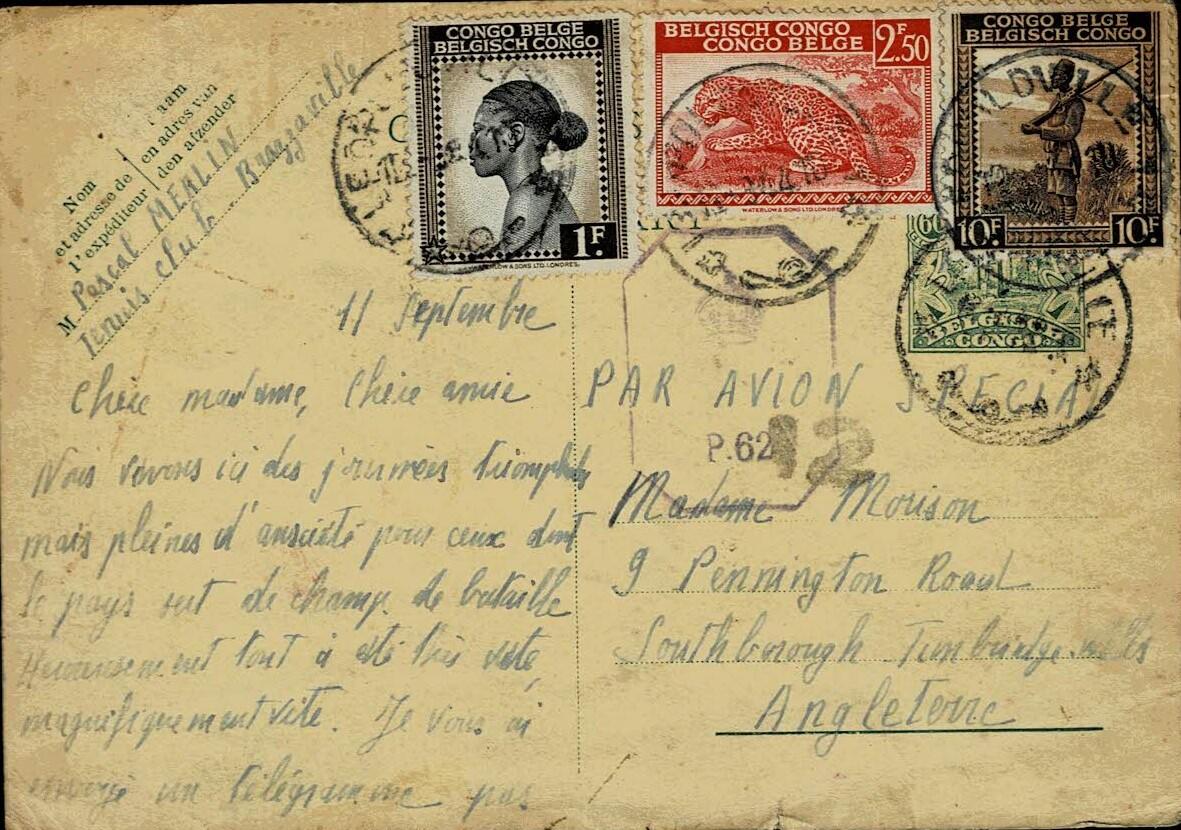 Nom
et adresse de
l'expéditeur
aam
en adres van
den afzender
M. Pescal MERLIN
Tennis club Brazzaville
CONGO BELGE
BELGISCH CONGO
1F
WATERLOW & SONS LTD. LONDRES.
BELGISCH CONGO
CONGO BELGE
2F.50
WATERLOW & SONS LTD. LONDRES
CONGO BELGE
BELGISCH CONGO
10F. 10F.
LEOPOLDVILLE
BELGISCH
CONGO
11 Septembre
Chère madame, Chère amie
Nous vivons ici des journées triomphales
mais pleines d'anxiété pour ceux dont
le pays sert de champ de bataille
Heureusement tout a été très vite,
magnifiquement vite. Je vous ai
envoyé un télégramme pas
PAR AVION SPECIA
P.62
12
Madame Morison
9 Pennington Road
Southborough Tunbridge wells
Angleterre